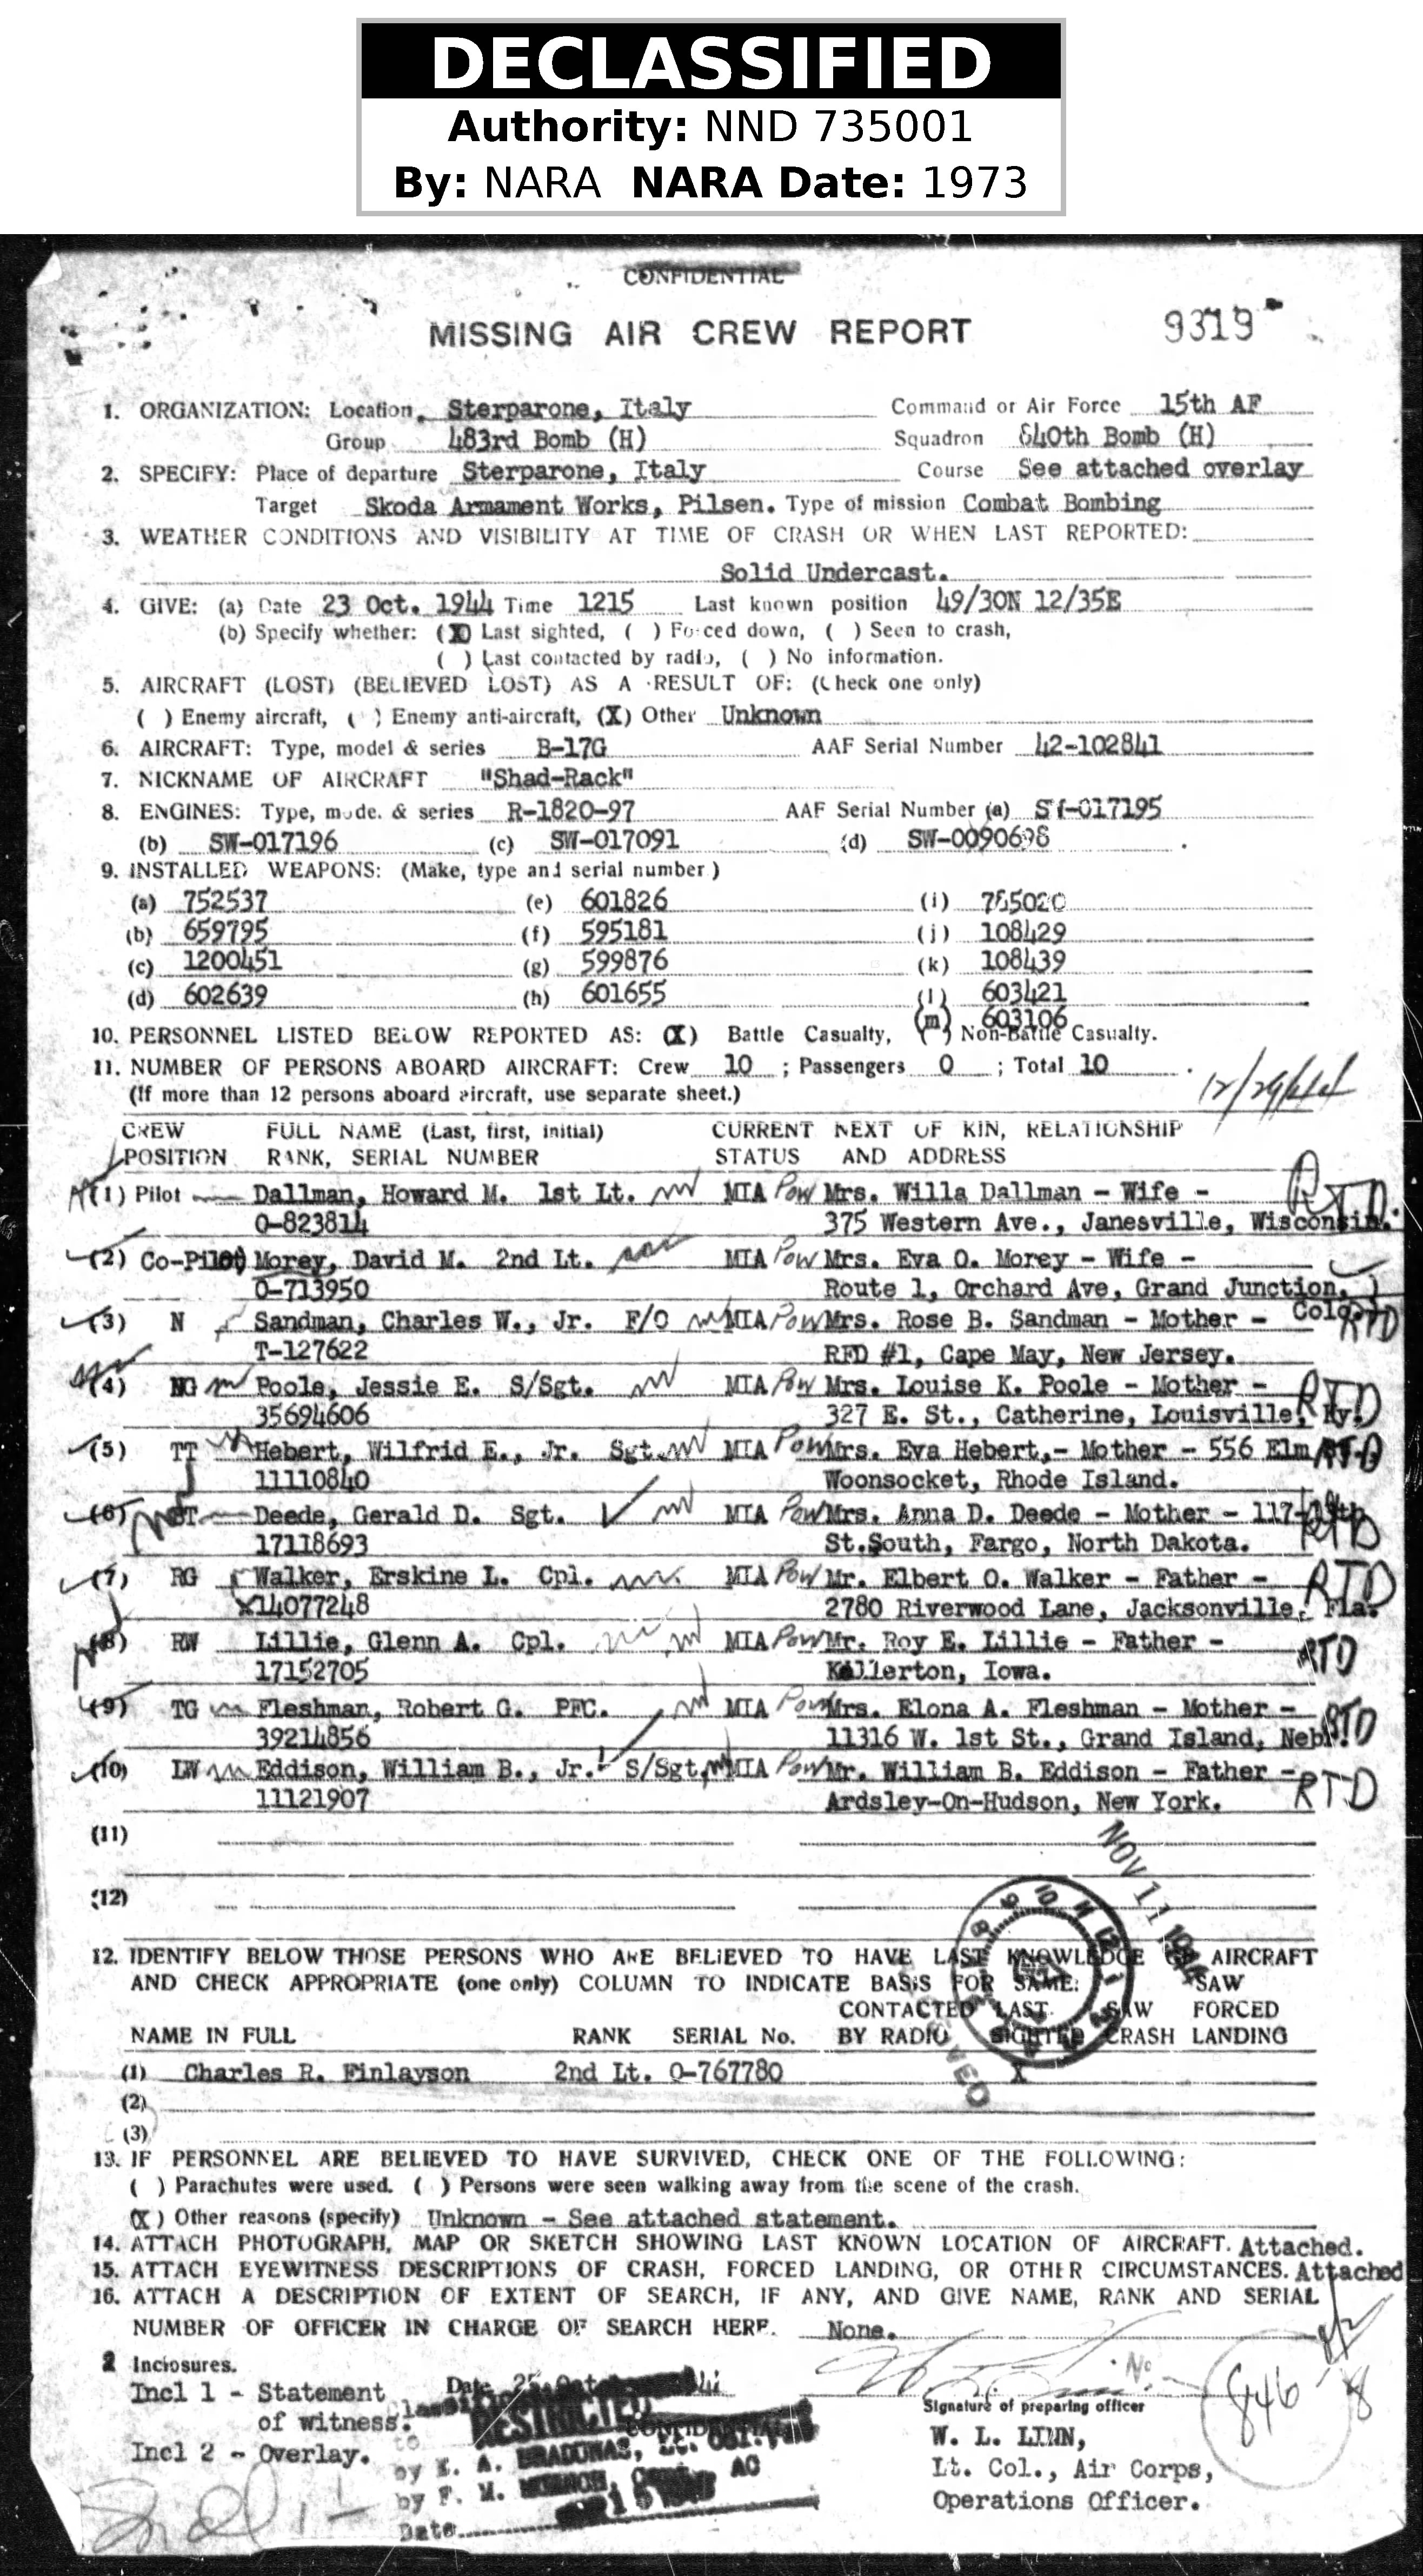 DECLASSIFIED
Authority: NND 735001
By: NARA NARA Date: 1973
CONFIDENTIAL
MISSING AIR CREW REPORT 9319
1. ORGANIZATION: Location Sterparone, Italy Command or Air Force 15th AF
Group 483rd Bomb (H) Squadron 840th Bomb (H)
2. SPECIFY: Place of departure Sterparone, Italy Course See attached overlay
Target Skoda Armament Works, Pilsen. Type of mission Combat Bombing
3. WEATHER CONDITIONS AND VISIBILITY AT TIME OF CRASH OR WHEN LAST REPORTED:
Solid Undercast.
4. GIVE: (a) Date 23 Oct. 1944 Time 1215 Last known position 49/30N 12/35E
(b) Specify whether: (X) Last sighted, ( ) Forced down, ( ) Seen to crash,
( ) Last contacted by radio, ( ) No information.
5. AIRCRAFT (LOST) (BELIEVED LOST) AS A RESULT OF: (Check one only)
( ) Enemy aircraft, ( ) Enemy anti-aircraft, (X) Other Unknown
6. AIRCRAFT: Type, model & series B-17G AAF Serial Number 42-102841
7. NICKNAME OF AIRCRAFT "Shad-Rack"
8. ENGINES: Type, mode. & series R-1820-97 AAF Serial Number (a) SW-017195
(b) SW-017196 (c) SW-017091 (d) SW-0090698
9. INSTALLED WEAPONS: (Make, type and serial number)
(a) 752537 (e) 601826 (i) 765020
(b) 659795 (f) 595181 (j) 108429
(c) 1200451 (g) 599876 (k) 108439
(d) 602639 (h) 601655 (l) 603421
(m) 603106
10. PERSONNEL LISTED BELOW REPORTED AS: (X) Battle Casualty, ( ) Non-Battle Casualty.
11. NUMBER OF PERSONS ABOARD AIRCRAFT: Crew 10 ; Passengers 0 ; Total 10
(If more than 12 persons aboard aircraft, use separate sheet.) 12/29/44
CREW FULL NAME (Last, first, initial) CURRENT NEXT OF KIN, RELATIONSHIP
POSITION RANK, SERIAL NUMBER STATUS AND ADDRESS
(1) Pilot Dallman, Howard M. 1st Lt. MIA POW Mrs. Willa Dallman - Wife - RTD
O-823814 375 Western Ave., Janesville, Wisconsin.
(2) Co-Pilot Morey, David M. 2nd Lt. MIA POW Mrs. Eva O. Morey - Wife -
O-713950 Route 1, Orchard Ave, Grand Junction,
(3) N Sandman, Charles W., Jr. F/O MIA POW Mrs. Rose B. Sandman - Mother - Colo. RTD
T-127622 RFD #1, Cape May, New Jersey.
(4) NG Poole, Jessie E. S/Sgt. MIA POW Mrs. Louise K. Poole - Mother - RTD
35694606 327 E. St., Catherine, Louisville, Ky.
(5) TT Hebert, Wilfrid E., Jr. Sgt. MIA POW Mrs. Eva Hebert,- Mother - 556 Elm RTD
11110840 Woonsocket, Rhode Island.
(6) BT Deede, Gerald D. Sgt. MIA POW Mrs. Anna D. Deede - Mother - 117-19th
17118693 St.South, Fargo, North Dakota. RTD
(7) RG Walker, Erskine L. Cpl. MIA POW Mr. Elbert O. Walker - Father - RTD
14077248 2780 Riverwood Lane, Jacksonville, Fla.
(8) RW Lillie, Glenn A. Cpl. MIA POW Mr. Roy E. Lillie - Father - RTD
17152705 Kellerton, Iowa.
(9) TG Fleshman, Robert G. PFC. MIA POW Mrs. Elona A. Fleshman - Mother - RTD
39214856 11316 W. 1st St., Grand Island, Nebr.
(10) LW Eddison, William B., Jr. S/Sgt. MIA POW Mr. William B. Eddison - Father - RTD
11121907 Ardsley-On-Hudson, New York.
(11)
(12)
NOV 11 1944
12. IDENTIFY BELOW THOSE PERSONS WHO ARE BELIEVED TO HAVE LAST KNOWLEDGE OF AIRCRAFT
AND CHECK APPROPRIATE (one only) COLUMN TO INDICATE BASIS FOR SAME: SAW
CONTACTED LAST SAW FORCED
NAME IN FULL RANK SERIAL No. BY RADIO SIGHTED CRASH LANDING
(1) Charles R. Finlayson 2nd Lt. O-767780 X
(2)
(3)
13. IF PERSONNEL ARE BELIEVED TO HAVE SURVIVED, CHECK ONE OF THE FOLLOWING:
( ) Parachutes were used. ( ) Persons were seen walking away from the scene of the crash.
(X) Other reasons (specify) Unknown - See attached statement.
14. ATTACH PHOTOGRAPH, MAP OR SKETCH SHOWING LAST KNOWN LOCATION OF AIRCRAFT. Attached.
15. ATTACH EYEWITNESS DESCRIPTIONS OF CRASH, FORCED LANDING, OR OTHER CIRCUMSTANCES. Attached
16. ATTACH A DESCRIPTION OF EXTENT OF SEARCH, IF ANY, AND GIVE NAME, RANK AND SERIAL
NUMBER OF OFFICER IN CHARGE OF SEARCH HERE. None.
2 Inclosures.
Incl 1 - Statement Date 25 Oct
of witness. RESTRICTED CONFIDENTIAL
Incl 2 - Overlay. to
by E. A. BRADUNAS, Lt. Col.
by F. M. AC
Date
Signature of preparing officer 846 8
W. L. LINN,
Lt. Col., Air Corps,
Operations Officer.